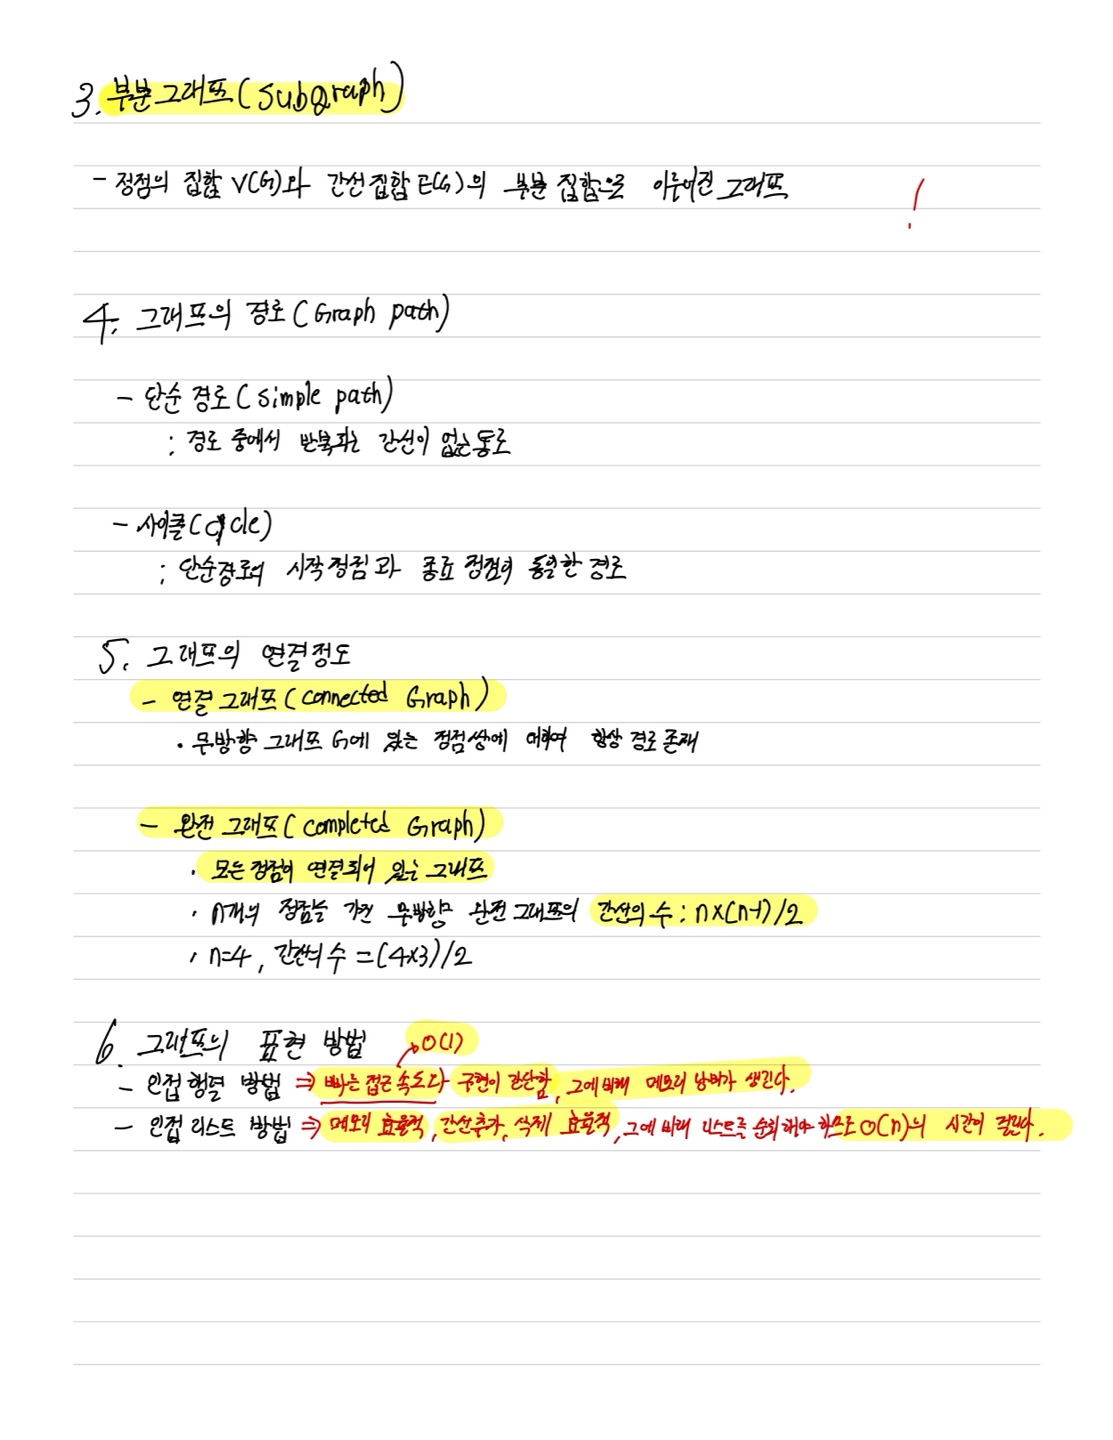 3. 부분그래프(Subgraph)
- 정점의 집합 V(G)와 간선집합 E(G)의 부분 집합으로 이루어진 그래프
!
4. 그래프의 경로(Graph path)
- 단순 경로(simple path)
; 경로 중에서 반복되는 간선이 없는 통로
- 사이클(cycle)
; 단순경로의 시작정점과 종료 정점이 동일한 경로
5. 그래프의 연결정도
- 연결 그래프(Connected Graph)
• 무방향 그래프 G에 있는 정점쌍에 대하여 항상 경로 존재
- 완전 그래프(Completed Graph)
• 모든 정점이 연결되어 있는 그래프
• n개의 정점을 가진 무방향 완전 그래프의 간선의 수 : n×(n-1)/2
• n=4, 간선의 수 = (4×3)/2
6. 그래프의 표현 방법 O(1)
- 인접 행렬 방법 ⇒ 빠른 접근 속도다 구현이 간단함, 그에 비해 메모리 낭비가 생긴다.
- 인접 리스트 방법 ⇒ 메모리 효율적, 간선추가, 삭제 효율적, 그에 비해 리스트를 순회해야 하므로 O(n)의 시간이 걸린다.